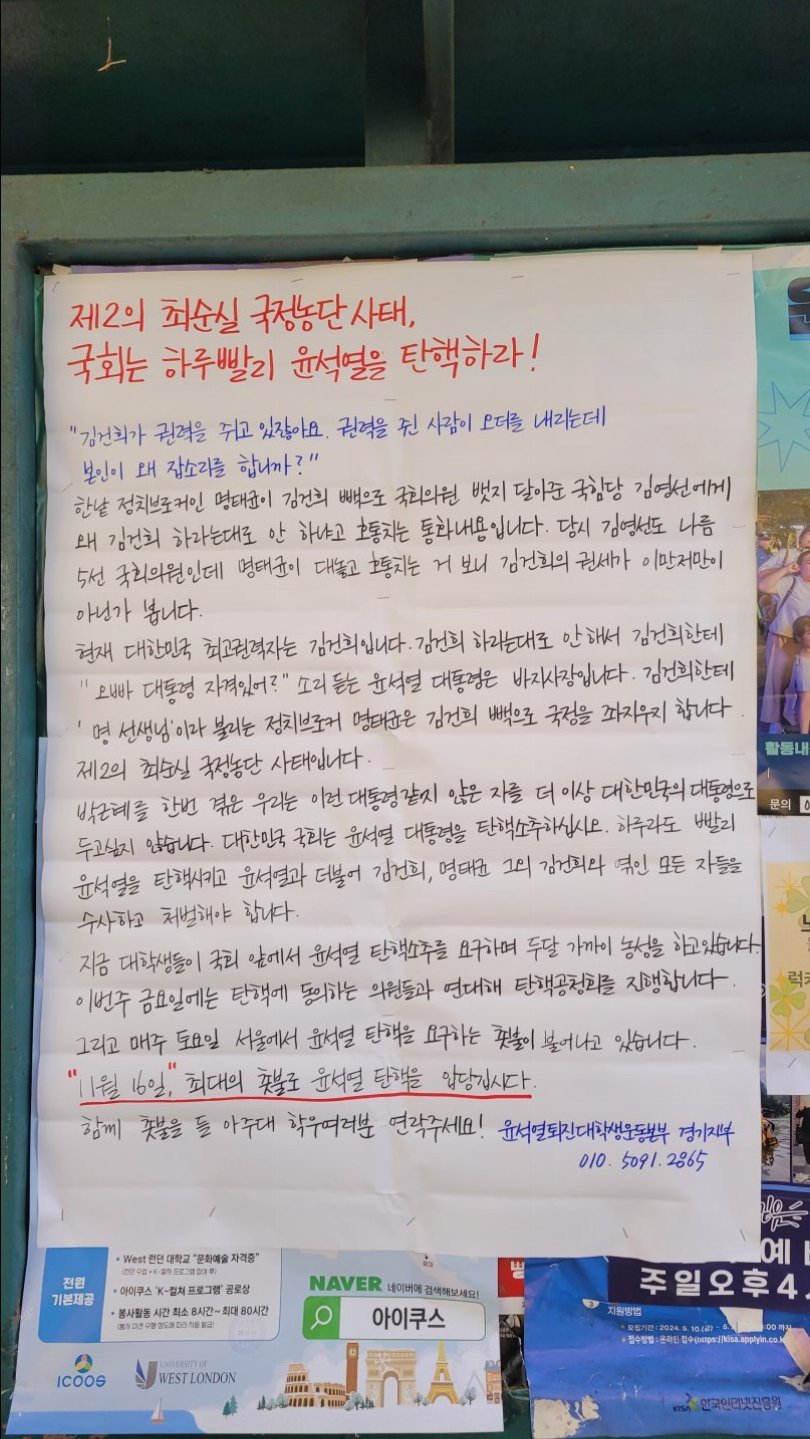 제2의 최순실 국정농단 사태,
국회는 하루빨리 윤석열을 탄핵하라!
"김건희가 권력을 쥐고 있잖아요. 권력을 쥔 사람이 오더를 내리는데
본인이 왜 잡소리를 합니까?"
한낱 정치브로커인 명태균이 김건희 빽으로 국회의원 뱃지 달아준 국힘당 김영선에게
왜 김건희 하라는대로 안 하냐고 호통치는 통화내용입니다. 당시 김영선도 나름
5선 국회의원인데 명태균이 대놓고 호통치는 거 보니 김건희의 권세가 이만저만이
아닌가 봅니다.
현재 대한민국 최고권력자는 김건희입니다. 김건희 하라는대로 안해서 김건희한테
"오빠 대통령 자격있어?" 소리 듣는 윤석열 대통령은 바지사장입니다. 김건희한테
'명 선생님'이라 불리는 정치브로커 명태균은 김건희 빽으로 국정을 좌지우지 합니다.
제2의 최순실 국정농단 사태입니다.
박근혜를 한번 겪은 우리는 이런 대통령같지 않은 자를 더 이상 대한민국의 대통령으로
두고싶지 않습니다. 대한민국 국회는 윤석열 대통령을 탄핵소추하십시오. 하루라도 빨리
윤석열을 탄핵시키고 윤석열과 더불어 김건희, 명태균 그외 김건희와 엮인 모든 자들을
수사하고 처벌해야 합니다.
지금 대학생들이 국회 앞에서 윤석열 탄핵소추를 요구하며 두달 가까이 농성을 하고있습니다.
이번주 금요일에는 탄핵에 동의하는 의원들과 연대해 탄핵공청회를 진행합니다.
그리고 매주 토요일 서울에서 윤석열 탄핵을 요구하는 촛불이 불어나고 있습니다.
"11월 16일," 최대의 촛불로 윤석열 탄핵을 앞당깁시다.
함께 촛불을 들 아주대 학우여러분 연락주세요! 윤석열퇴진대학생운동본부 경기지부
010. 5091. 2865
활동내
문의
럭키
전원
기본제공
• West 런던 대학교 "문화예술 자격증"
• 아이쿠스 'K-컬쳐 프로그램' 공로상
• 봉사활동 시간 최소 8시간~최대 80시간
ICOOS
UNIVERSITY OF
WEST LONDON
NAVER 네이버에 검색해보세요!
아이쿠스
주일오후4
지원방법
KISA 한국인터넷진흥원